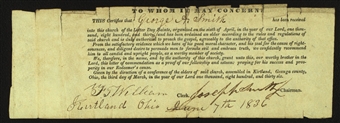 TO WHOM IT MAY CONCERN:
THIS Certifies that George A. Smith has been received
into this church of the Latter Day Saints, organized on the sixth of April, in the year of our Lord, one thousand, eight hundred, and thirty, and has been ordained an elder according to the rules and regulations of
said church, and is duly authorized to preach the gospel, agreeably to the authority of that office.
From the satisfactory evidence which we have of his good moral character, and his zeal for the cause of righteousness, and diligent desire to persuade men to forsake evil and embrace truth, we confidently recommend
him to all candid and upright people as a worthy member of society.
We, therefore, in the name, and by the authority of this church, grant unto this, our worthy brother in the
Lord, this letter of commendation as a proof of our fellowship and esteem: praying for his success and prosperity in our Redeemer's cause.
Given by the direction of a conference of the elders of said church, assembled in Kirtland, Geauga county,
Ohio, the third day of March, in the year of our Lord, one thousand, eight hundred, and thirty six.
F. G. Williams Clerk. Joseph Smith Jr Chairman.
Kirtland Ohio June 7th 1836